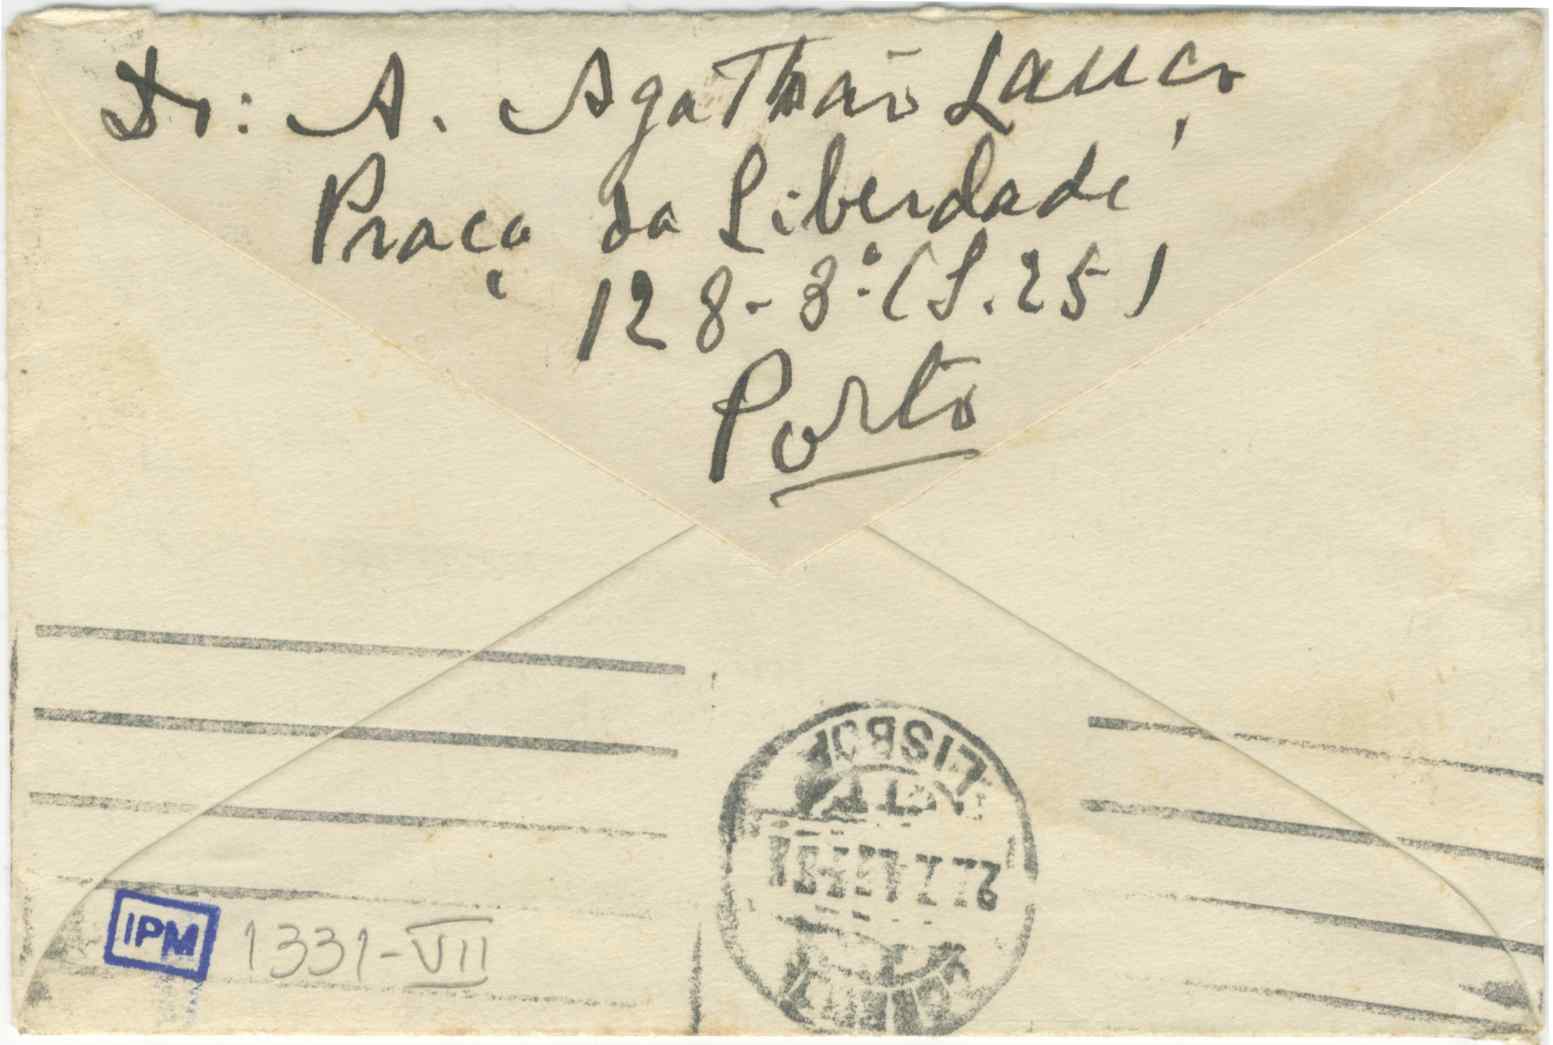 Dr: A. Agathão Lança
Praça da Liberdade
128-3.º (S. 25)
Porto
LISBOA
IPM 1331-VII